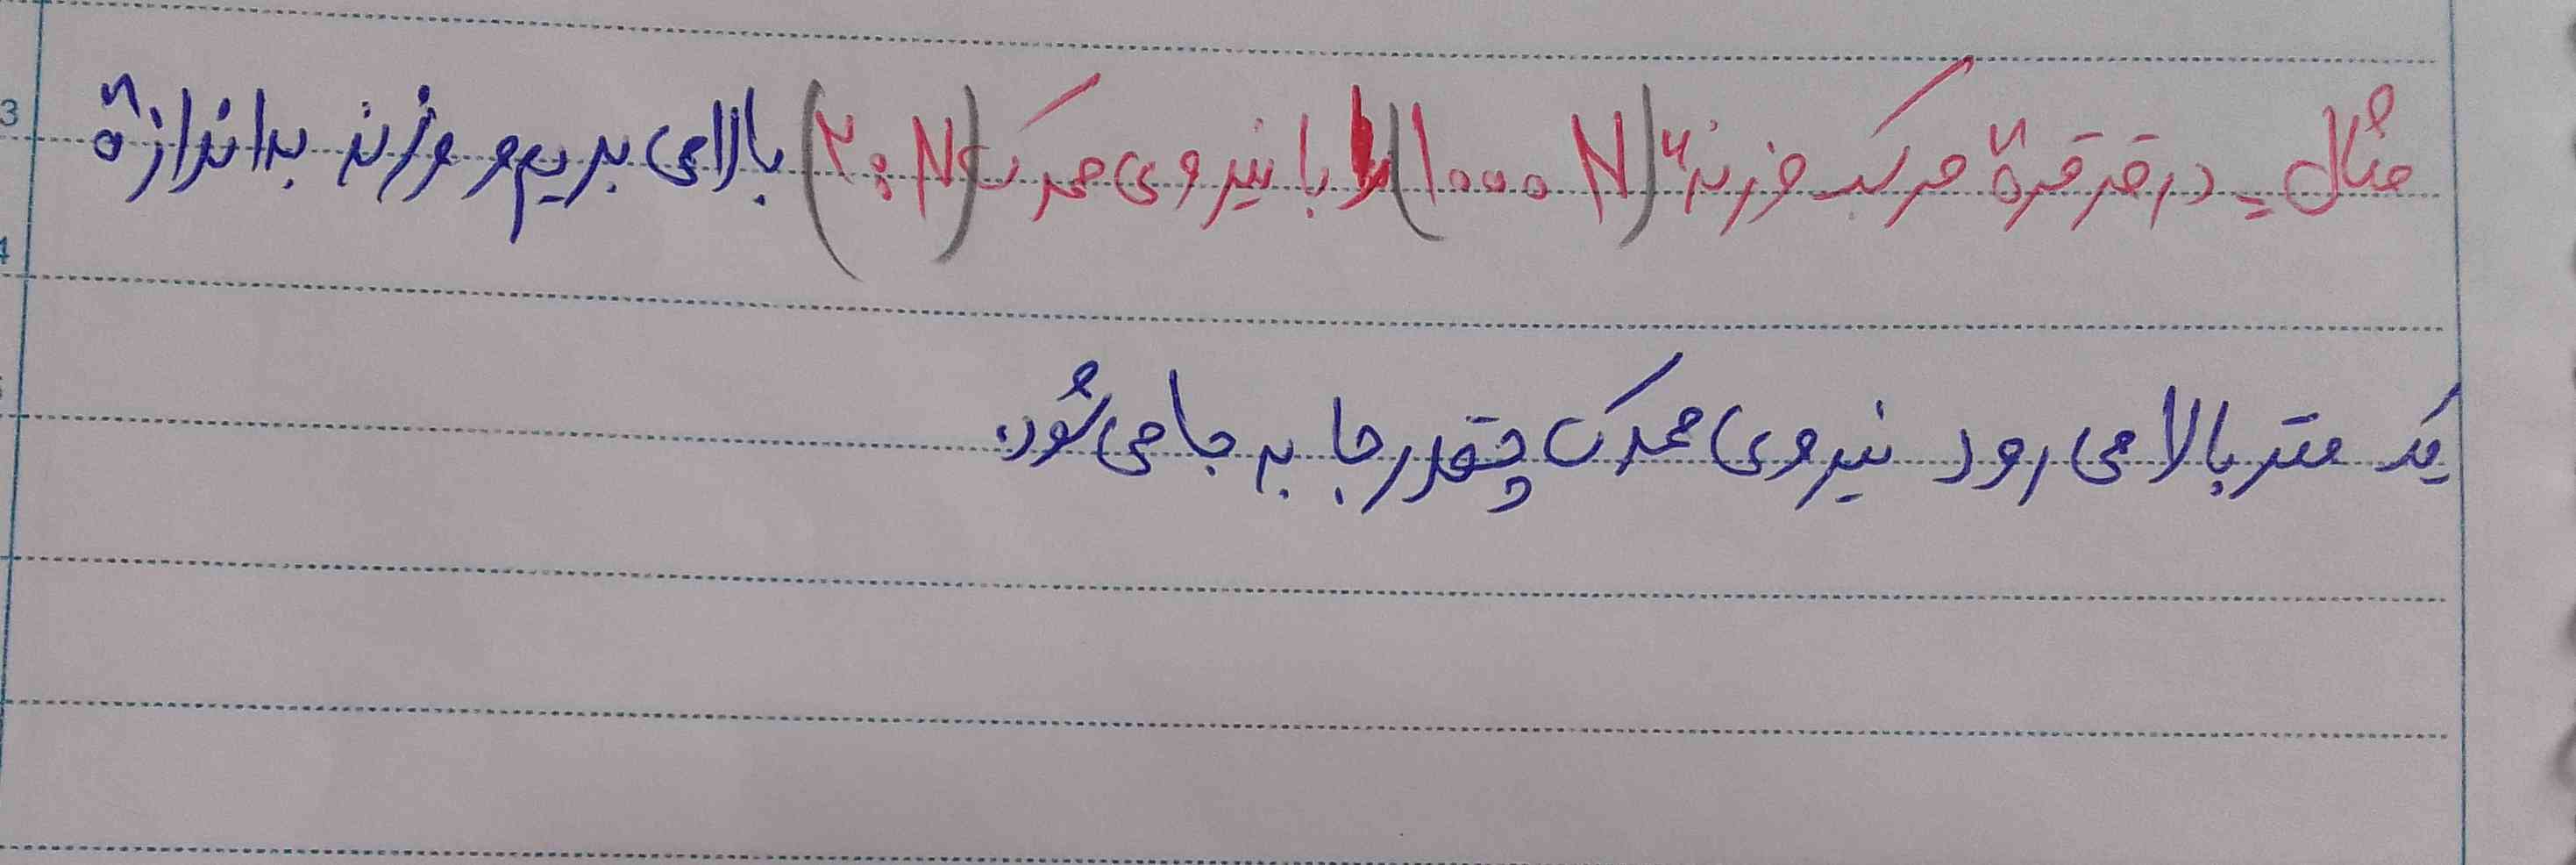 3
مثال = در قرقرهٔ مرکب وزنهٔ (۱۰۰۰ N) را با نیروی محرک (۲۰۰ N) بالا می بریم و وزنه به اندازهٔ
4
یک متر بالا می رود نیروی محرک چقدر جا به جا می شود.